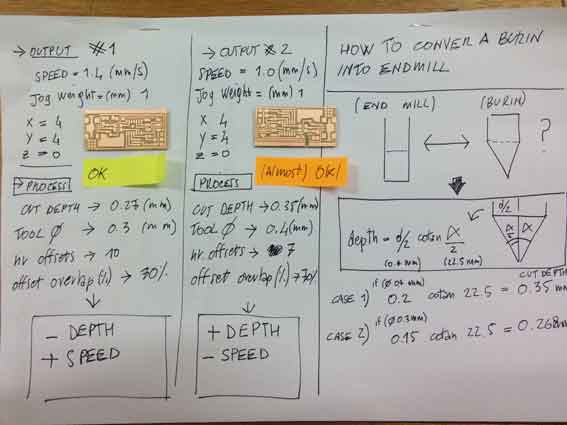 → OUTPUT #1
SPEED = 1.4 (mm/s)
Jog Weight = (mm) 1
X = 4
Y = 4
Z = 0
OK
→ PROCESS
CUT DEPTH → 0.27 (mm)
TOOL Ø → 0.3 (mm)
nr offsets → 10
offset overlap (%) → 30%
- DEPTH
+ SPEED
→ OUTPUT #2
SPEED = 1.0 (mm/s)
Jog Weight = (mm) 1
X = 4
Y = 4
Z = 0
(Almost) OK!
PROCESS
CUT DEPTH → 0.35 (mm)
TOOL Ø → 0.4 (mm)
nr. offsets → 7
offset overlap (%) → 70%
+ DEPTH
- SPEED
HOW TO CONVER A BURIN
INTO ENDMILL
(END MILL) (BURIN)
?
depth = d/2 cotan α/2
(0.4 mm) (22.5 mm)
d/2
α
α/2
CUT DEPTH
if (Ø 0.4 mm)
CASE 1) 0.2 cotan 22.5 = 0.35 mm
if (Ø 0.3 mm)
CASE 2) 0.15 cotan 22.5 = 0.268 mm